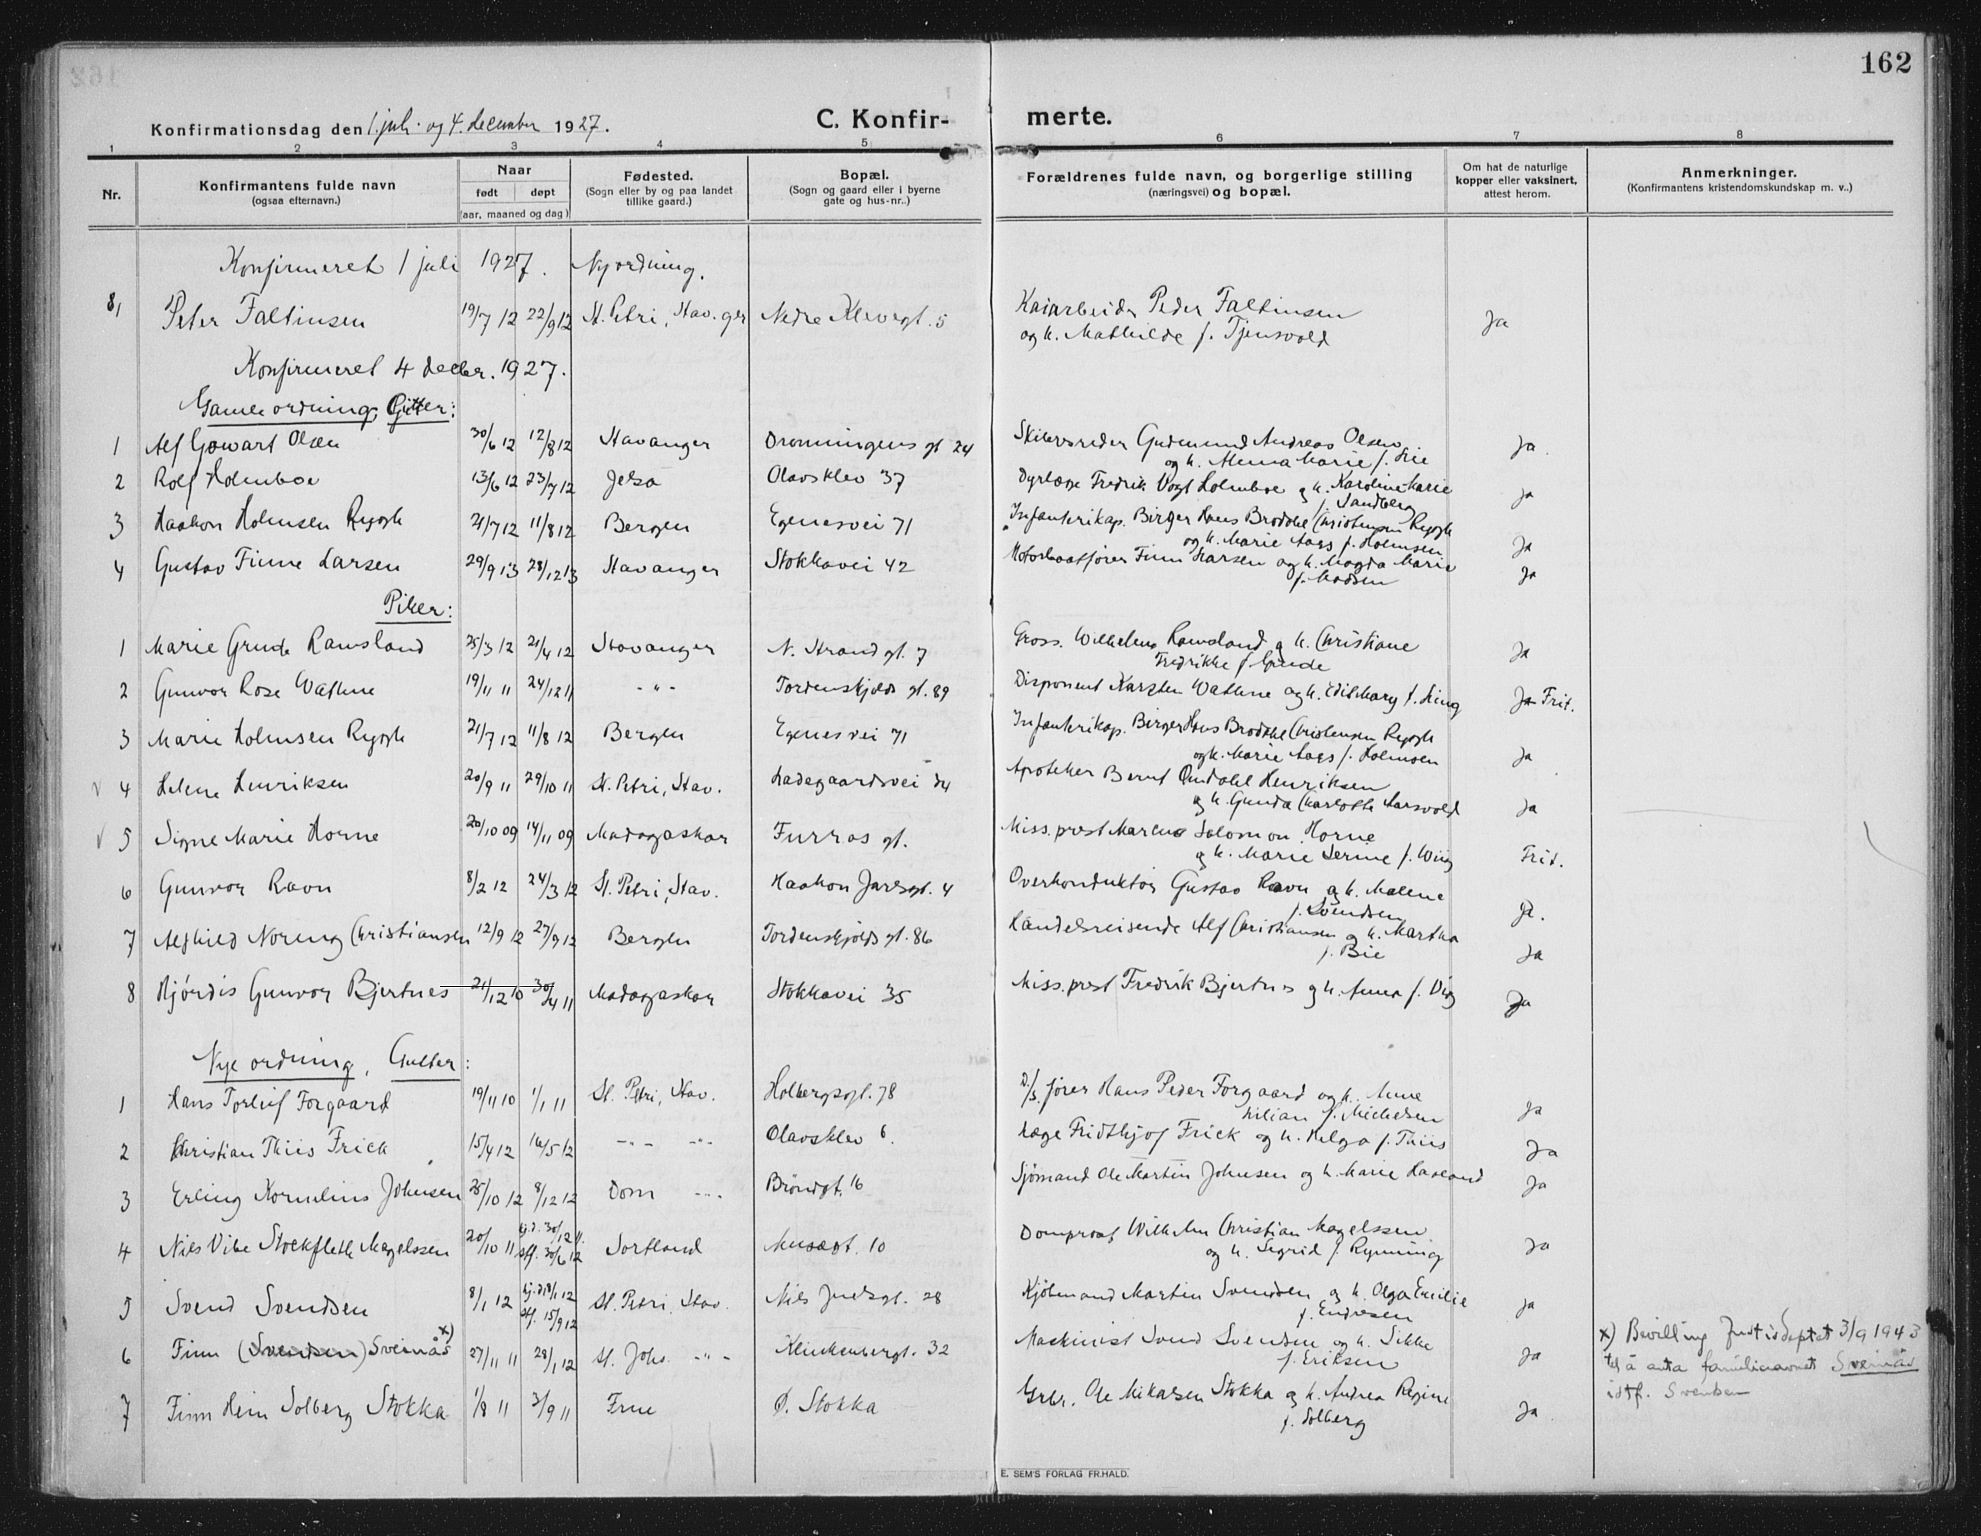 162
Konfirmationsdag den 1. juli og 4. december 1927.
C. Konfirmerte.
1 2 3 4 5 6 7 8
Nr.
Konfirmantens fulde navn
(ogsaa efternavn.)
Naar
født døpt
(aar, maaned og dag)
Fødested.
(Sogn eller by og paa landet
tillike gaard.)
Bopæl.
(Sogn og gaard eller i byerne
gate og hus-nr..)
Forældrenes fulde navn, og borgerlige stilling
(næringsvei) og bopæl.
Om hat de naturlige
kopper eller vaksinert,
attest herom.
Anmerkninger.
(Konfirmantens kristendomskundskap m. v..)
Konfirmeret 1 juli 1927. Ny ordning.
Peter Faltinsen 19/7 12 22/9 12 St. Petri, Stav.ger Nedre Klevegt. 5 Kaiarbeider Peder Faltinsen Ja
og h. Mathilde f. Tjensvold
Konfirmeret 4 decbr. 1927.
Gamle ordning, Gutter:
1 Alf Gowart Olsen 30/6 12 12/8 12 Stavanger Dronningens gt 24 Skibsreder Gudmund Andreas Olsen Ja
og h. Marie f.
2 Rolf Holmboe 13/6 12 23/7 12 Jelsa Olavsklev 37 Dyrlæge Fredrik Vogt Holmboe og h. Karoline Marie Ja
f. Sandberg
3 Haakon Holmsen Rygh 21/7 12 11/8 12 Bergen Egenesvei 71 Infanterikap. Birger Hans Broddel Christensen Rygh
og h. Marie Aars f. Holmsen Ja
4 Gustav Finne Larsen 29/9 13 28/12 13 Stavanger Stokkavei 42 Motorbaatfører Finn Larsen og h. Magda Marie Ja
f. Madsen
Piker:
1 Marie Grude Ramsland 25/3 12 21/4 12 Stavanger N. Strandgt. 7 Gross. Wilhelm Ramsland og h. Christiane Ja
Fredrikke f. Grude
2 Gunvor Rose Wathne 19/11 11 24/12 11 - " - Tordenskjolds gt. 89 Disponent Karsten Wathne og h. Edith Mary f. King Frit.
3 Marie Holmsen Rygh 21/7 12 11/8 12 Bergen Egenesvei 71 Infanterikap. Birger Hans Broddel Christensen Rygh
og h. Marie Aars f. Holmsen Ja
√ 4 Helene Henriksen 20/9 11 29/10 11 St. Petri, Stav. Ladegaardsvei 24 Apoteker Bernt Omdahl Henriksen
og h. Gunda Charlotte Aarsvold Ja
√ 5 Signe Marie Horne 20/10 09 14/11 09 Madagaskar Furras gt. Miss. prest Salomon Horne
og h. Marie f. Wiig Frit.
6 Gunvor Ravn 8/2 12 24/3 12 St. Petri, Stav. Haakon Jarlsgt. 4 Overkonduktør Gustav Ravn og h. Malene
f. Svendsen Ja.
7 Alfhild Noreng Christiansen 12/9 12 27/9 12 Bergen Tordenskjolds gt. 86 Handelsreisende Alf Christiansen og h. Martha
f. Bie Ja
8 Hjørdis Gunvor Bjertnes 21/12 10 30/4 11 Madagaskar Stokkavei 35 Miss. prest Fredrik Bjertnes og h. Anna f. Ja
Nye ordning, Gutter:
1 Hans Torleif Forgaard 19/11 10 1/1 11 St. Petri, Stav. Holbergsgt. 78 D/S. fører Hans Peder Forgaard og h. Anne
Lilian f. Michelsen Ja
2 Christian Thiis Frick 15/4 12 16/5 12 - " - - " - Olavsklev 6. Læge Fridthjof Frick og h. Helga f. Thiis Ja
3 Erling Kornelius Johnsen 25/10 12 8/12 12 Dom - " - Brøndgt. 16 Sjømand Ole Martin Johnsen og h. Marie Haaland Ja
4 Nils Vibe Stockfleth Magelssen 20/10 11 hj.d. 30/12 11. stf. 30/6 12 Sortland Musegt. 10 Domprost Wilhelm Christian Magelssen
og h. Sigrid f. Rynning Ja
5 Svend Svendsen 8/1 12 hj.d 18/1 12 stf. 15/9 12 St. Petri, Stav. Niels Juelsgt. 28 Kjøbmand Martin Svendsen og h. Olga Emilie
f. Endresen Ja
6 Finn (Svendsen) Sveinås x) 27/11 11 28/1 12 St. Johs. - " - Klinkenbergt. 32 Maskinist Svend Svendsen og h. Sikke
f. Eriksen Ja
x) Bevilling Justisdeptet 3/9 1943
til å anta familienavnet Sveinås
istf. Svendsen
7 Finn Hein Solberg Stokka 1/8 11 3/9 11 Frue Ø. Stokka Grbr. Ole Mikalsen Stokka og h. Andrea Regine
f. Solberg Ja
E. SEM'S FORLAG FR.HALD.